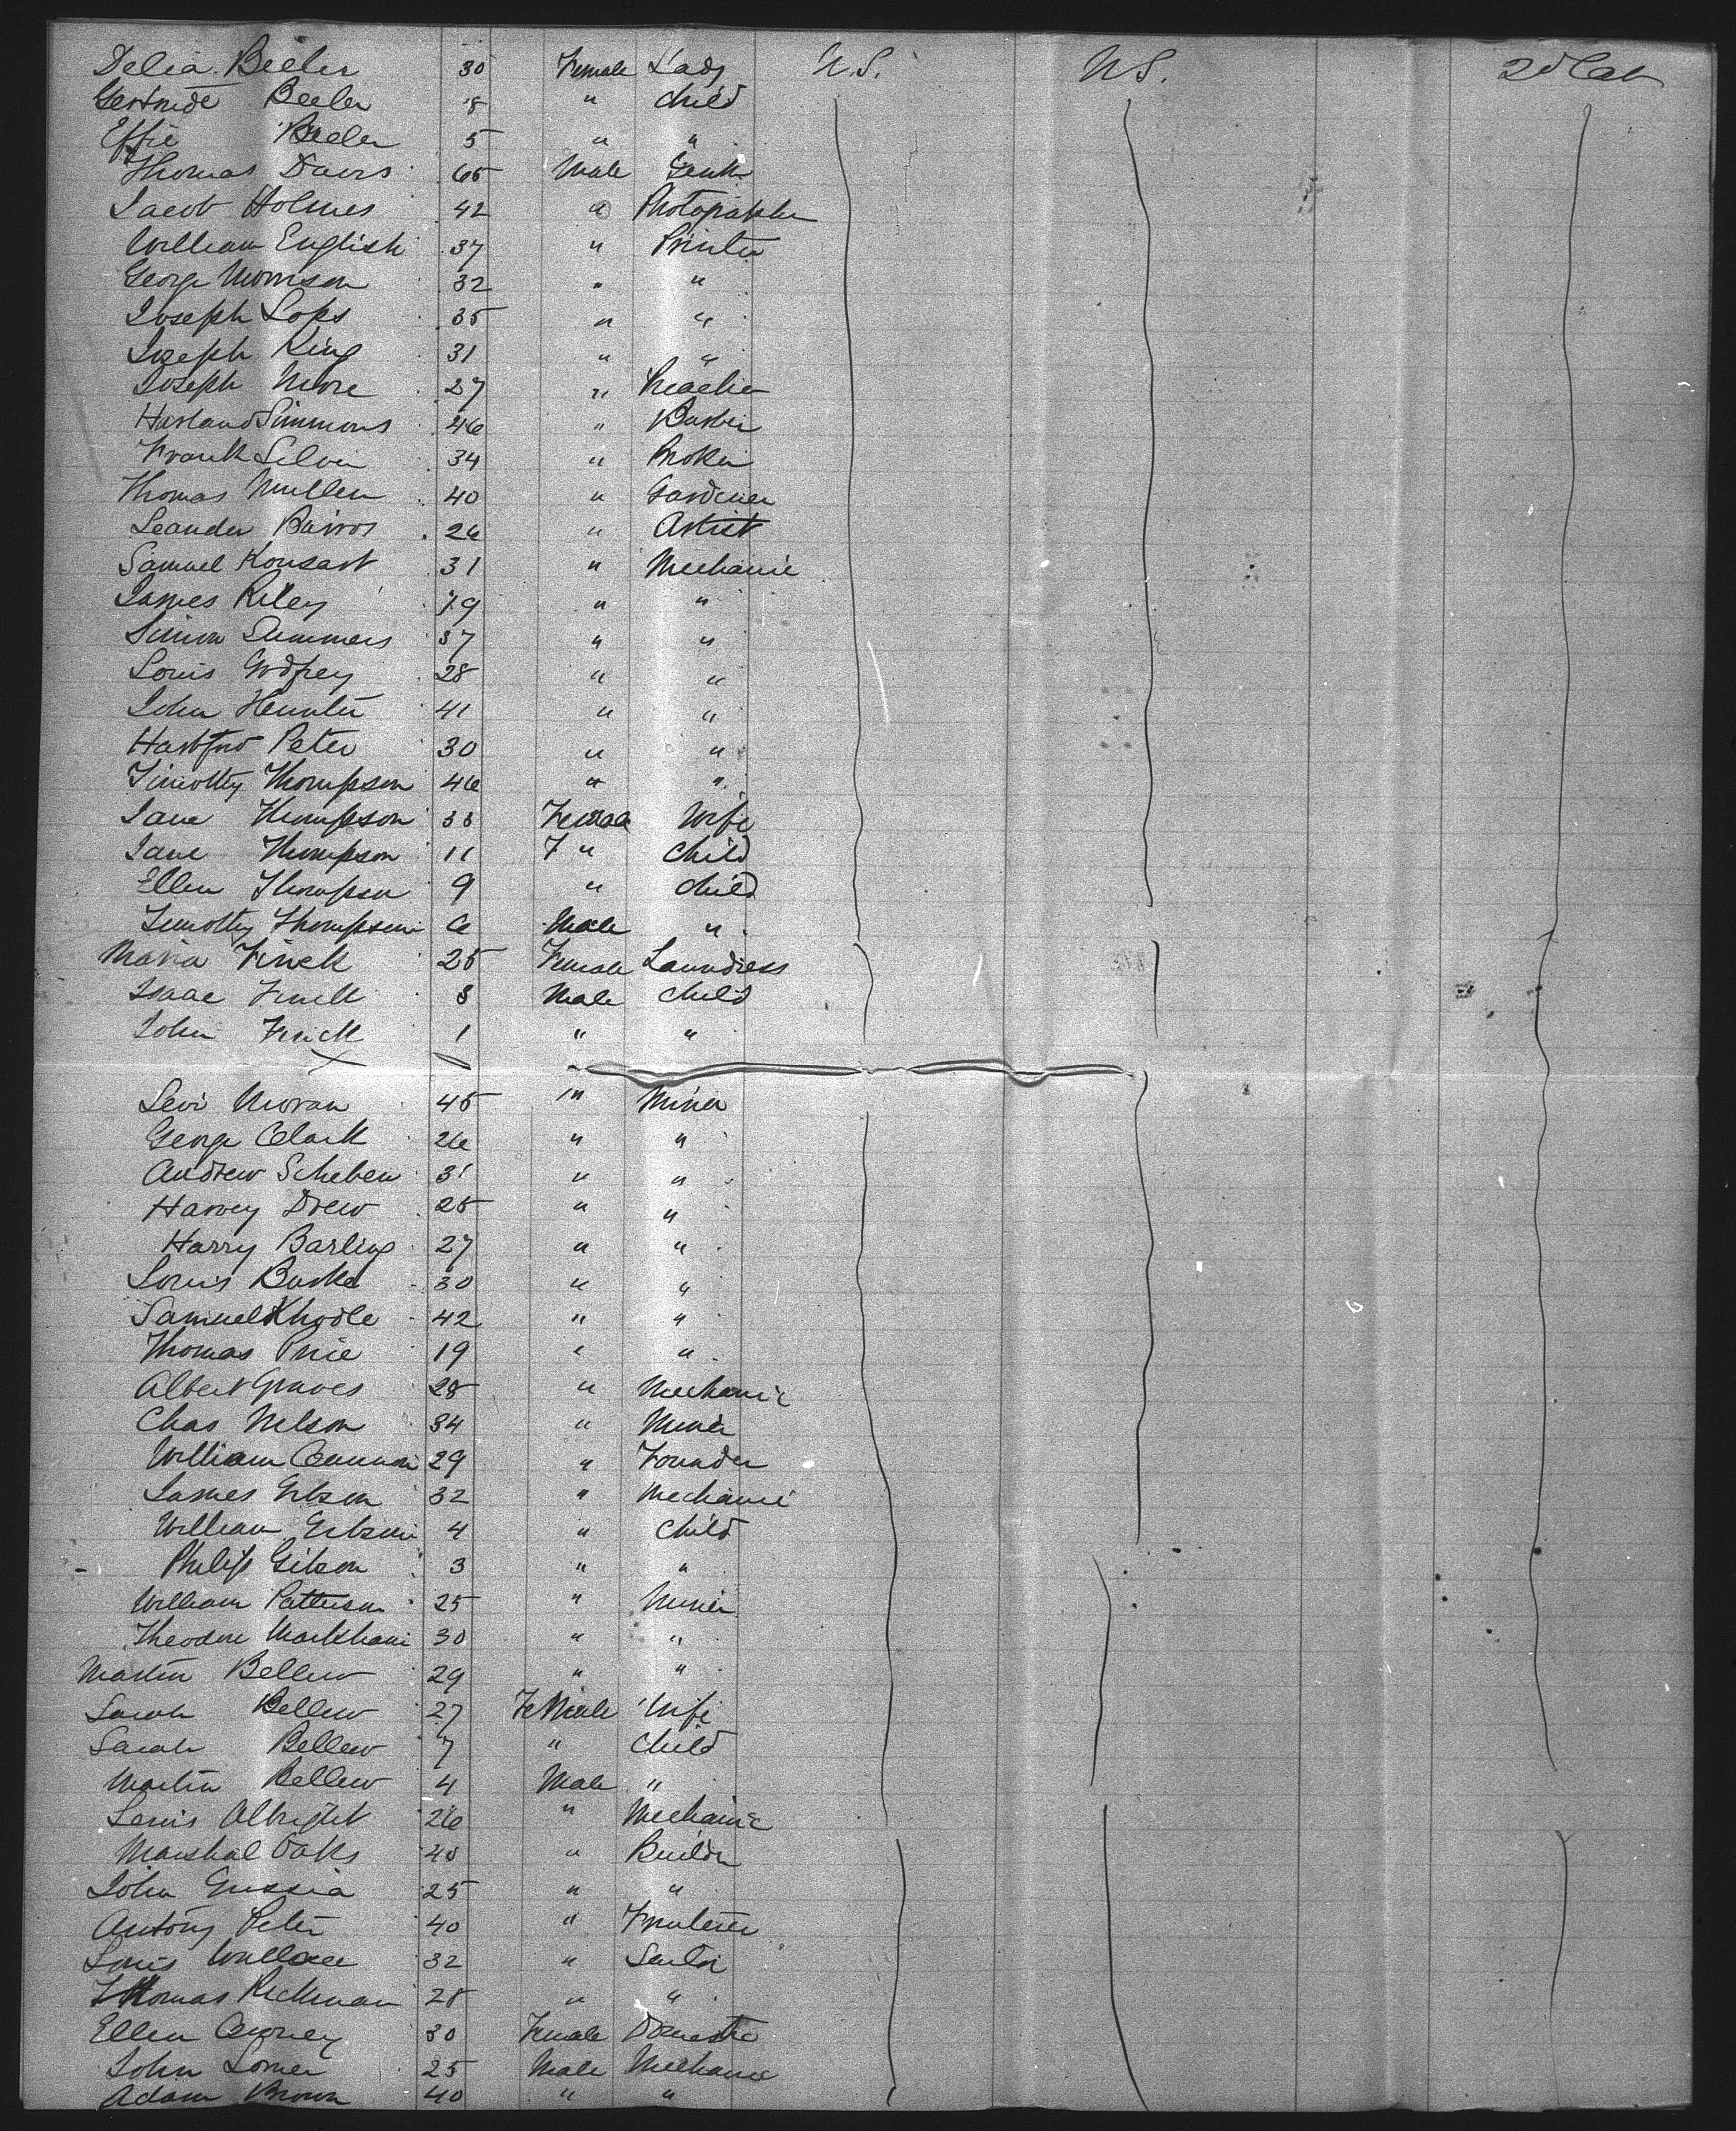 Delia Beeler 30 Female Lady U.S. U.S. 2d Cab
Gertrude Beeler 8 " Child
Effie Beeler 5 " "
Thomas Davis 65 Male Gent
Jacob Holmes 42 " Photopapher
William English 37 " Printer
George Morrison 32 " "
Joseph Lops 35 " "
Joseph King 31 " "
Joseph Moore 27 "
Harland Simmons 46 " Barber
Frank Silvia 34 " Broker
Thomas Mullen 40 " Gardener
Leander Barros 26 " Artist
Samuel Konsart 31 " Mechanic
James Riley 79 " "
Simon Summers 37 " "
Louis Godfrey 28 " "
John Hunter 41 " "
Hartford Peter 30 " "
Timothy Thompson 46 " "
Jane Thompson 33 Female Wife
Jane Thompson 11 F " Child
Ellen Thompson 9 " Child
Timothy Thompson 6 Male "
Maria Finck 25 Female Laundress
Isaac Finck 3 Male Child
John Finck 1 " "
Levi Moran 45 " Miner
George Clark 26 " "
Andrew Scheben 31 " "
Harvey Drew 25 " "
Harry Barling 27 " "
Louis Burke 30 " "
Samuel Khodle 42 " "
Thomas Price 19 " "
Albert Graves 28 " Mechanic
Chas Nelson 34 " Miner
William Cannon 29 " Founder
James Gibson 32 " Mechanic
William Gibson 4 " Child
Philip Gibson 3 " "
William Patterson 25 " Miner
Theodore Markham 30 " "
Martin Bellew 29 " "
Sarah Bellew 27 Female Wife
Sarah Bellew 7 " Child
Martin Bellew 4 Male "
Lewis Albright 26 " Mechanic
Marshal Oaks 40 " Builder
John Grussia 25 " "
Antony Peter 40 " Fruiterer
Louis Wallace 32 " Sailor
Thomas Richman 28 " "
Ellen 30 Female Domestic
John Lomer 25 Male Mechanic
Adam Brown 40 " "